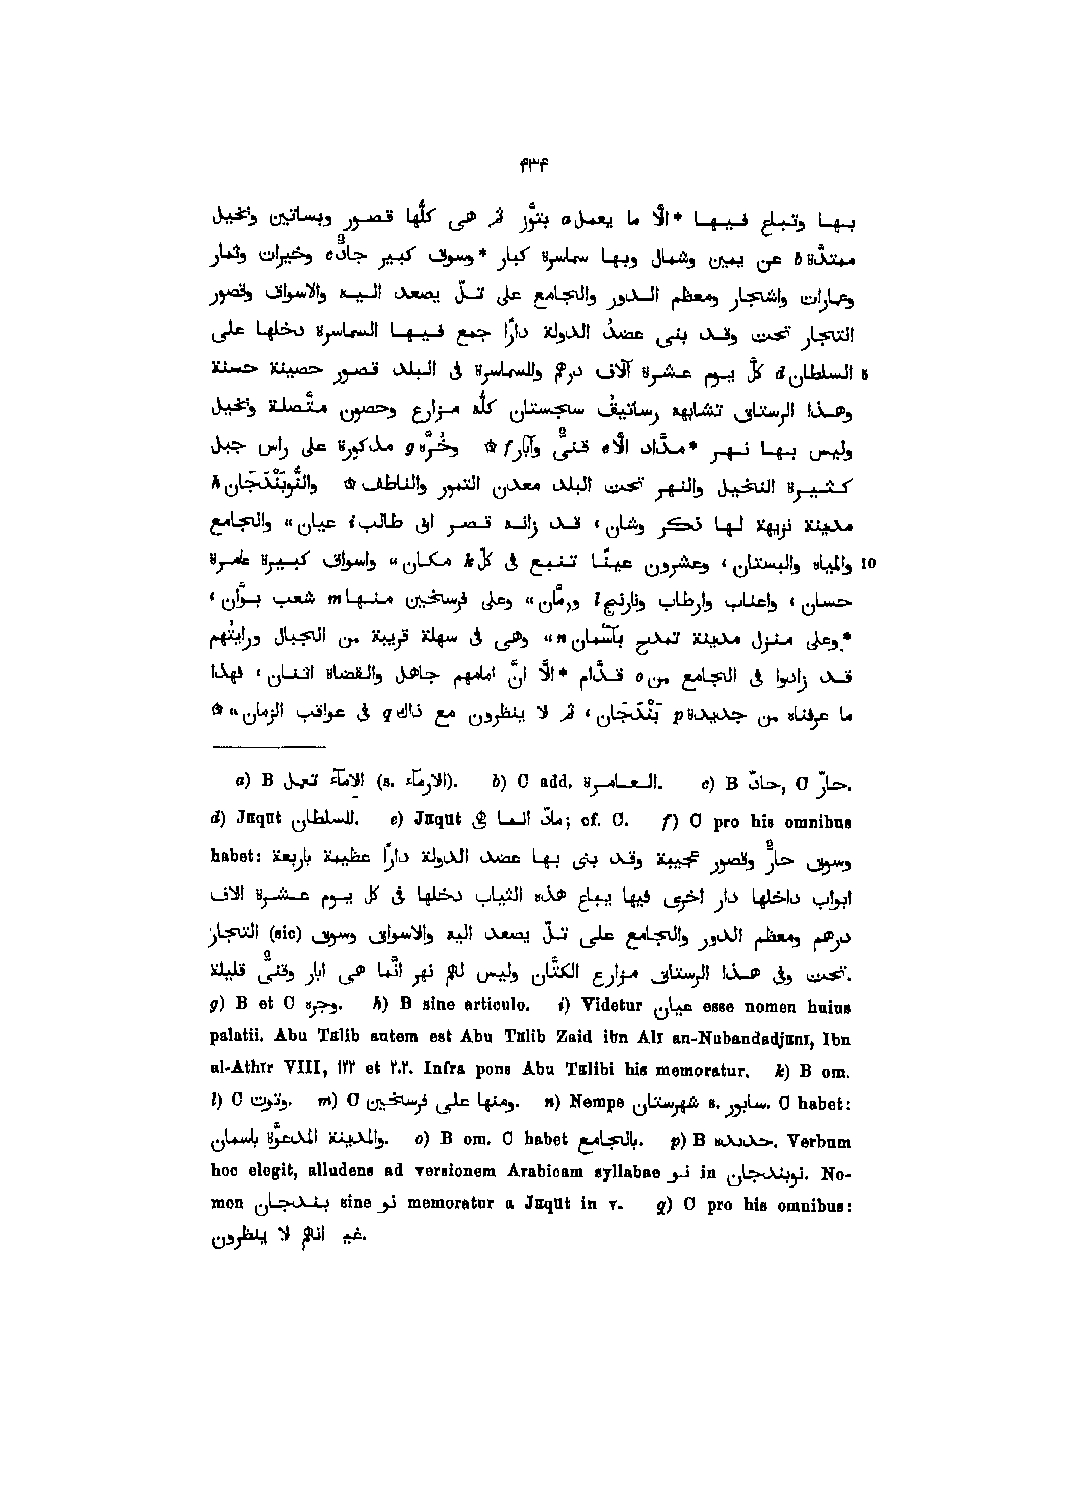 ۴۳۴
بـهـا وتباع فـيـهـا *الّا ما يعملa بتَوَّز ثم هى كلُّها قصور وبساتين ونخيل
ممتدّةb عن يمين وشمال وبها سماسرة كبار *وسوق كبير جادّc وخيرات وثمار
وعمارات واشجار ومعظم الـدور والجامع على تـلّ يصعد اليـه والاسواق وقصور
التجار تحت وقـد بنى عضدُ الدولة دارًا جمع فـيـهـا السماسرة دخلها على
السلطانd كلّ يـوم عـشرة آلاف درهم وللسماسرة فى البلد قصور حصينة حسنة 5
وهـذا الرستاق تشابهه رساتيقُ سجستان كلّه مـزارع وحصون متّصلة ونخيل
وليس بـهـا نـهـر *مدّاد الّاe قنىٌّ وآبارf ۞ وخُرَّهg مذكورة على راس جبل
كـثـيـرة النخيل والنهر تحت البلد معدن التمور والناطف ۞ والنُّوبَنْدَجَانh
مدينة نزيهة لـها ذكـر وشان، قـد زانـه قـصـر ابى طالبi عيان ،، والجامع
والمياه والبستان، وعشرون عينًا تـنـبـع فى كلّk مكان ،، واسواق كبـيـرة عامرة 10
حسان، واعناب وارطاب ونارنجl ورمَّان ،، وعلى فرسخين مـنـهـاm شعب بـوَّان،
*وعلى منزل مدينة تمدح باَسْمانn ،، وهى فى سهلة قريبة من الجبال ورايتُهم
قـد زادوا فى الجامع منo قـدَّام *الّا انَّ امامهم جاهل والقضاة اثنان، فهذا
ما عرفناه من جديدةp بَنْدَجَان، ثم لا ينظرون مع ذلكq فى عواقب الزمان ،، ۞
a) B الامآء تعمل (s. الارمآء). b) C add. العامرة. c) B حادّ, C حارّ.
d) Jâqût للسلطان. e) Jâqût مادّ انما هى; cf. C. f) C pro his omnibus
habet: وسوق حارٌّ وقصور عجيبة وقد بنى بها عضد الدولة دارًا عظيمة باربعة
ابواب داخلها دار اخرى فيها يباع هذه الثياب دخلها فى كل يـوم عـشـرة الاف
درهم ومعظم الدور والجامع على تـلّ يصعد اليه والاسواق وسوق (sic) التجار
تحت وفى هـذا الرستاق مزارع الكتَّان وليس لهم نهر انَّما هى ابار وقنىٌّ قليلة.
g) B et C وجره. h) B sine articulo. i) Videtur عيان esse nomen huius
palatii. Abu Tâlib autem est Abu Tâlib Zaid ibn Alî an-Nubandadjânî, Ibn
al-Athîr VIII, ١٢٢ et ٢٠٢. Infra pons Abu Tâlibi his memoratur. k) B om.
l) C وتوت. m) C ومنها على فرسخين. n) Nempe شهرستان s. سابور. C habet:
والمدينة المدعوَّة باسمان. o) B om. C habet بالجامع. p) B حديده. Verbum
hoc elegit, alludens ad versionem Arabicam syllabae نو in نوبندجان. No-
men بندجان sine نو memoratur a Jâqût in v. q) C pro his omnibus:
غير انهم لا ينظرون.